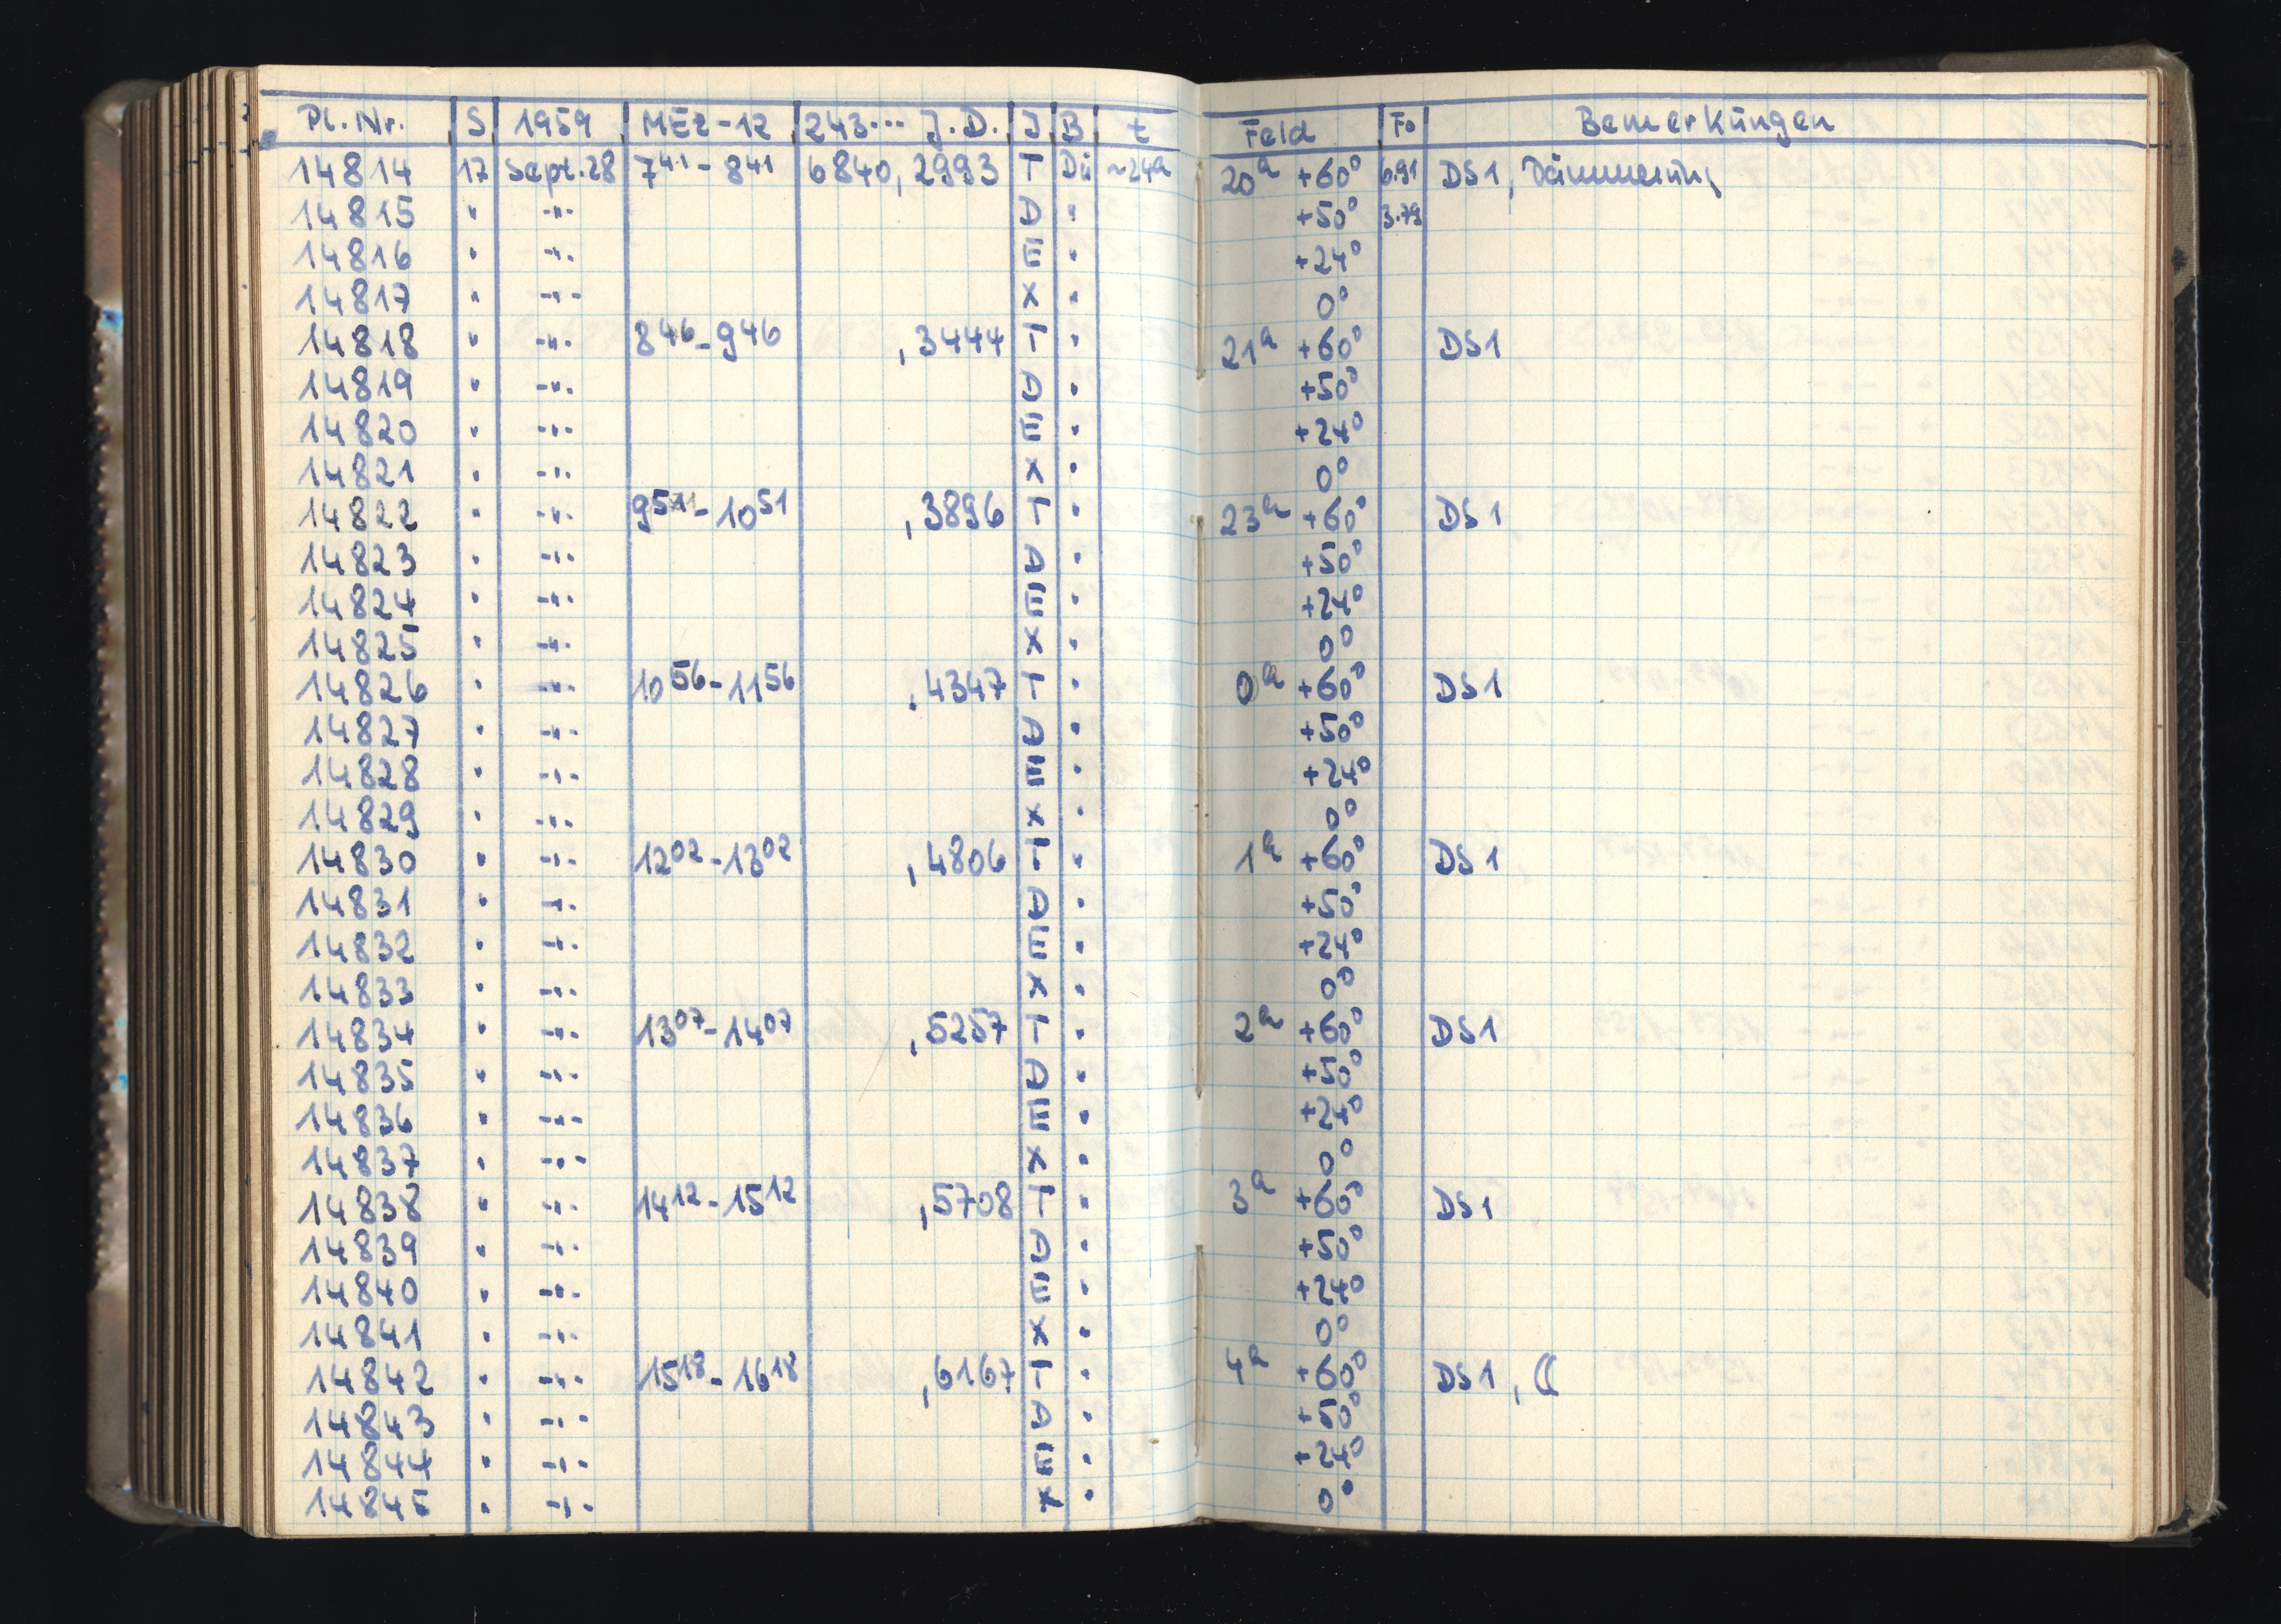 Pl. Nr. S 1959 MEZ-12 243... J.D. J B t Feld Fo Bemerkungen
14814 17 Sept. 28 7⁴¹ - 8⁴¹ 6840,2993 T Dü ~24h 20h +60° 6.91 DS1, Dämmerung
14815 " -"- D " +50° 3.79
14816 " -"- E " +24°
14817 " -"- X " 0°
14818 " -"- 8⁴⁶ - 9⁴⁶ ,3444 T " 21h +60° DS1
14819 " -"- D " +50°
14820 " -"- E " +24°
14821 " -"- X " 0°
14822 " -"- 9⁵¹ - 10⁵¹ ,3896 T " 23h +60° DS1
14823 " -"- D " +50°
14824 " -"- E " +24°
14825 " -"- X " 0°
14826 " -"- 10⁵⁶ - 11⁵⁶ ,4347 T " 0h +60° DS1
14827 " -"- D " +50°
14828 " -"- E " +24°
14829 " -"- X " 0°
14830 " -"- 12⁰² - 13⁰² ,4806 T " 1h +60° DS1
14831 " -"- D " +50°
14832 " -"- E " +24°
14833 " -"- X " 0°
14834 " -"- 13⁰⁷ - 14⁰⁷ ,5257 T " 2h +60° DS1
14835 " -"- D " +50°
14836 " -"- E " +24°
14837 " -"- X " 0°
14838 " -"- 14¹² - 15¹² ,5708 T " 3h +60° DS1
14839 " -"- D " +50°
14840 " -"- E " +24°
14841 " -"- X " 0°
14842 " -"- 15¹⁸ - 16¹⁸ ,6167 T " 4h +60° DS1, ☾
14843 " -"- D " +50°
14844 " -"- E " +24°
14845 " -"- X " 0°